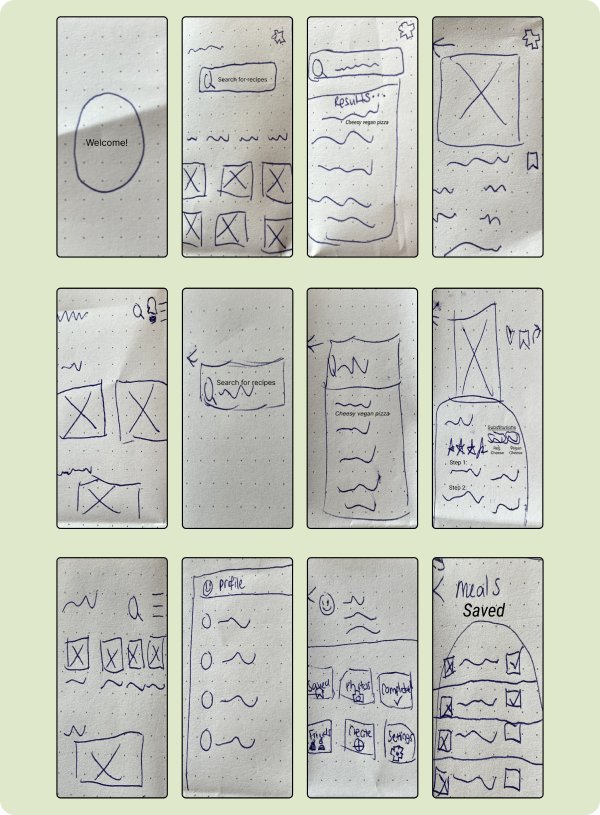 Welcome!
Search for recipes
Results...
Cheesy vegan pizza
Search for recipes
Cheesy vegan pizza
Substitutions
Reg. Cheese
Vegan Cheese
Step 1:
Step 2:
Profile
Saved
Photos
Completed
Friends
Create
Settings
Meals
Saved